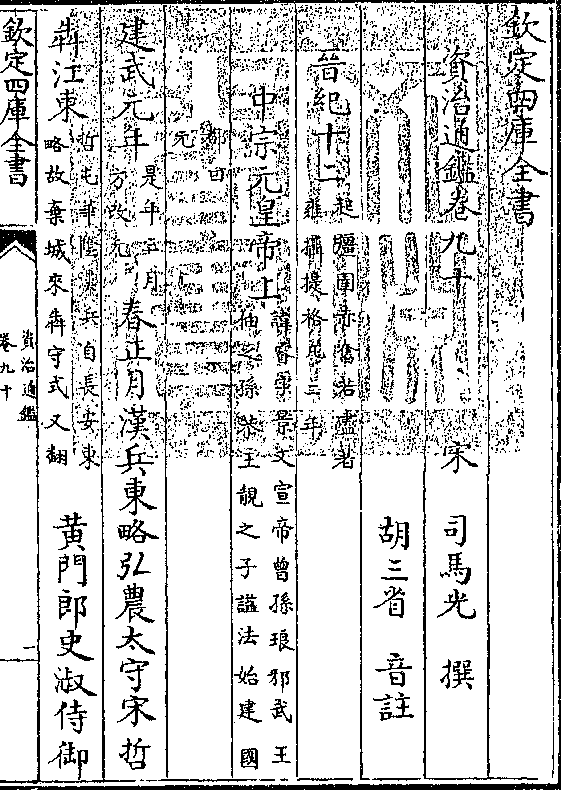 欽定四庫全書
資治通鑑卷九十　宋　司馬光　撰
胡三省　音註
晉紀十二 起彊圉赤奮若盡著
雍攝提格凡二年
中宗元皇帝上 諱睿字景文宣帝曾孫琅邪武王
伷之孫恭王覲之子諡法始建國
都曰
元
建武元年 是年三月
方改元 春正月漢兵東略弘農太守宋哲
犇江東 哲屯華陰漢兵自長安東
略故棄城來犇守式又翻 黄門郎史淑侍御
欽定四庫全書
資治通鑑
卷九十